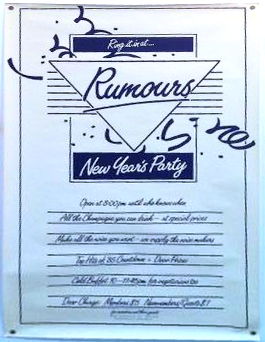 Ring it in at...
Rumours
New Year's Party
Open at 8:00pm until who knows when
All the Champagne you can drink - at special prices
Make all the noise you want - we supply the noise makers
Top Hits of '85 Countdown - Door Prizes
Cold Buffet 10-11:45pm for vegetarians too
Door Charge: Members $5 Nonmembers/Guests $7